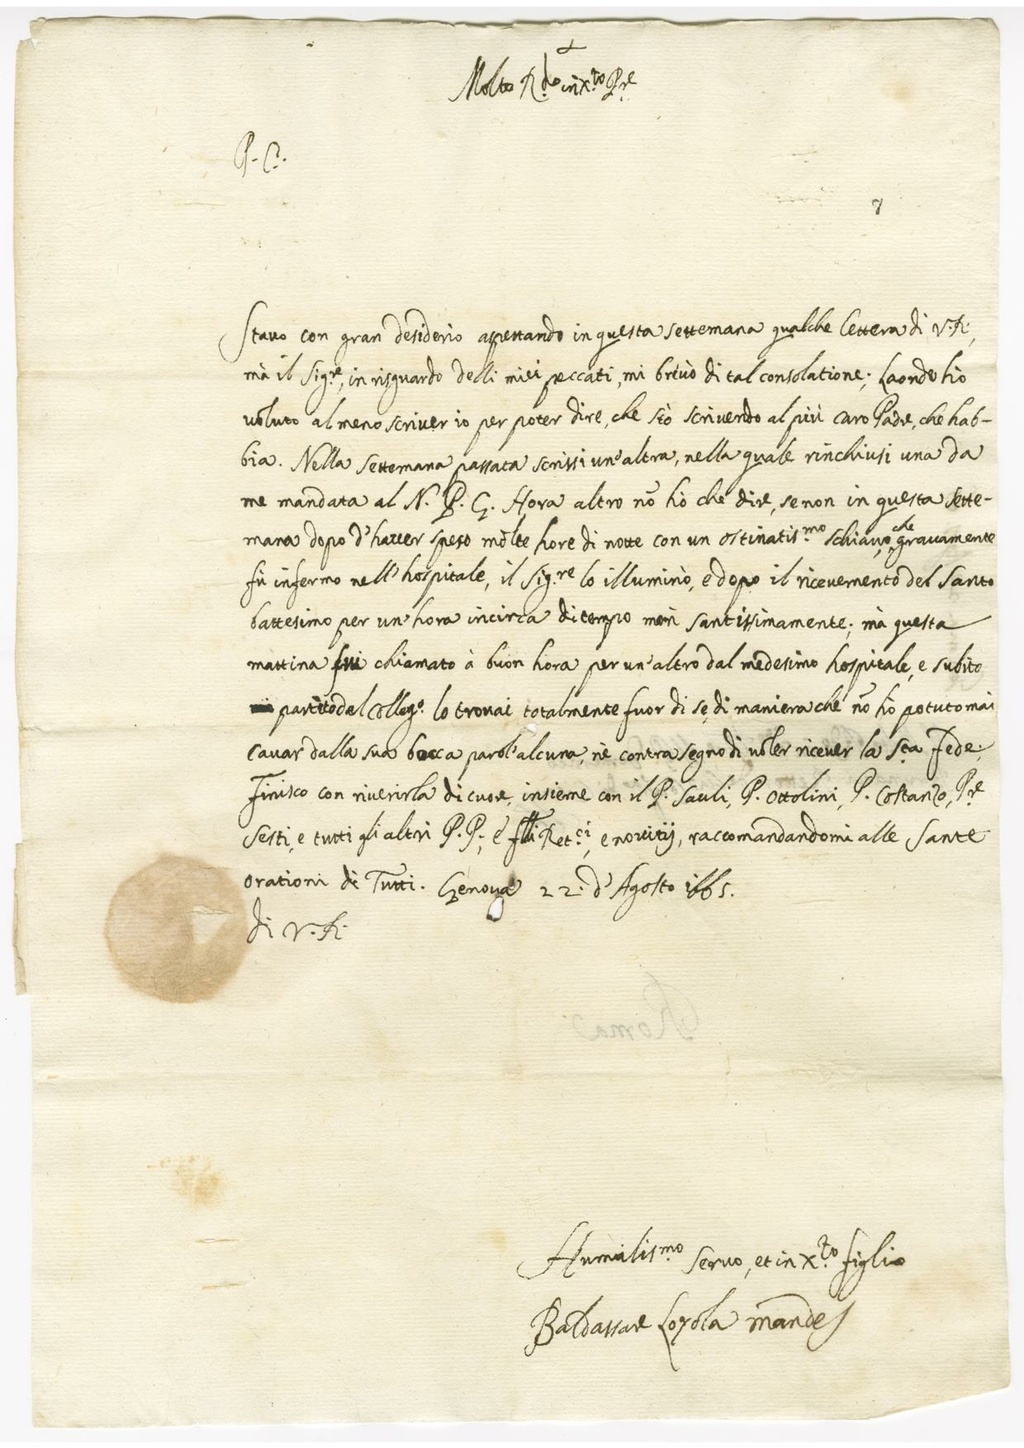 Molto R.do in X.to P.re
P. C.
7
Stauo con gran desiderio aspettando in questa settemana qualche lettera di V. R.,
mà il Sig.re, in risguardo delli miei peccati, mi privò di tal consolatione; Laonde hò
voluto al meno scriver io per poter dire, che stò scrivendo al più caro Padre, che hab-
bia. Nella settemana passata scrissi un'altra, nella quale rinchiusi una da
me mandata al N. P. G. Hora altro nõ hò che dire, se non in questa sette-
mana dopo d'hauer speso molte hore di notte con un ostinatis.mo schiavo, che gravamente
fù infermo nell'hospitale, il Sig.re lo illuminò, e dopo il ricevemento del Santo
battesimo per un'hora incirca di tempo morì santissimamente; mà questa
mattina fui chiamato à buon hora per un'altro dal medesimo hospitale, e subito
partito dal Colleg.o lo trovai totalmente fuor di se, di maniera che nõ hò potuto mai
cavar dalla sua bocca parol'alcuna, nè contrasegno di voler ricever la S.ta Fede.
Finisco con riverirla di cuore, insieme con il P. Sauli, P. Ottolini, P. Costanzo, P.re
Sesti, e tutti gli altri P.P., e f.lli Ret.ci, e novitij, raccomandandomi alle Sante
orationi di Tutti. Genova 22. d'Agosto 1665.
di V. R.
Roma
Humilis.mo servo, et in X.to figlio
Baldassare Loyola Mandes